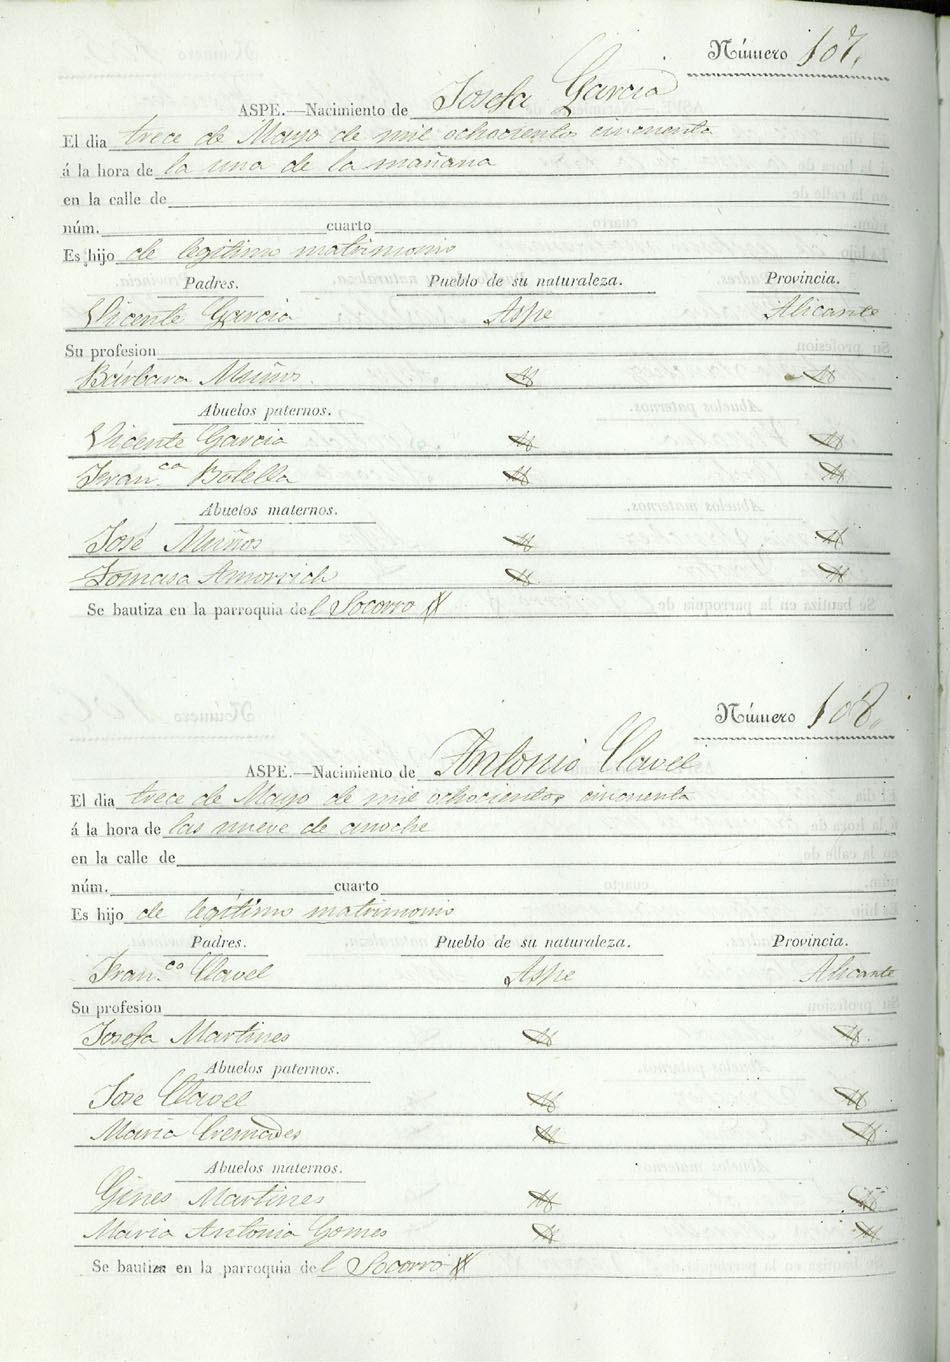 Número 107.
ASPE.—Nacimiento de Josefa Garcia
El dia trece de Mayo de mil ochocientos cincuenta
á la hora de la una de la mañana
en la calle de
núm. cuarto
Es hijo de legitimo matrimonio
Padres. Pueblo de su naturaleza. Provincia.
Vicente Garcia Aspe Alicante
Su profesion
Bárbara Muños
Abuelos paternos.
Vicente Garcia
Fran.ca Botella
Abuelos maternos.
José Muños
Tomasa
Se bautiza en la parroquia del Socorro
Número 108.
ASPE.—Nacimiento de Antonio Clavel
El dia trece de Mayo de mil ochocientos cincuenta
á la hora de las nueve de anoche
en la calle de
núm. cuarto
Es hijo de legítimo matrimonio
Padres. Pueblo de su naturaleza. Provincia.
Fran.co Clavel Aspe Alicante
Su profesion
Josefa Martines
Abuelos paternos.
Jose Clavel
Maria Cremades
Abuelos maternos.
Gines Martines
Maria Antonia Gomes
Se bautiza en la parroquia del Socorro